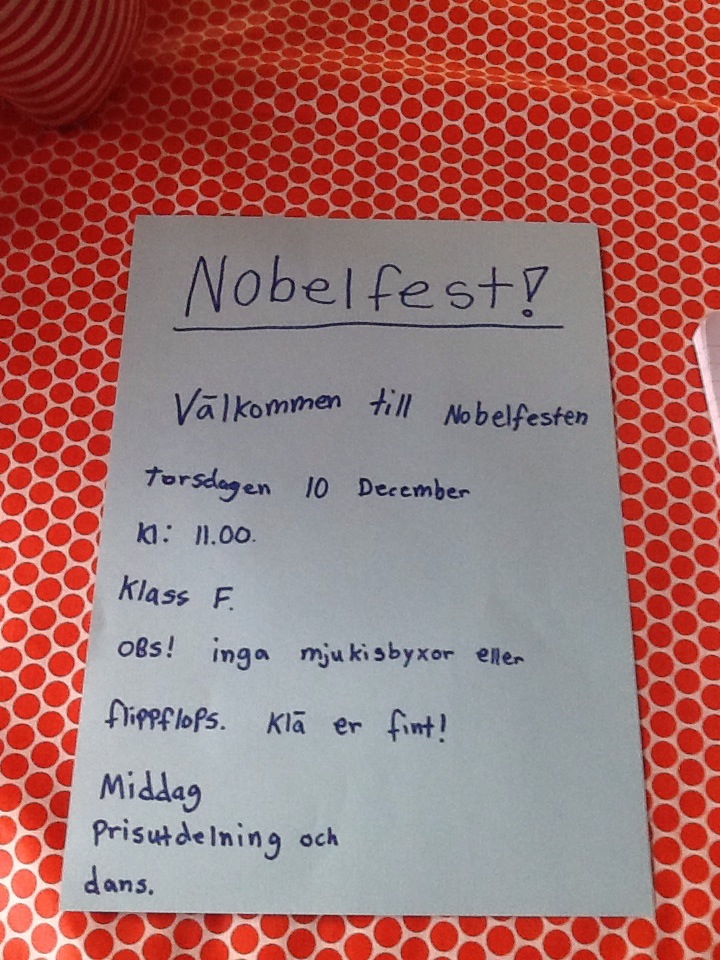 Nobelfest!
Välkommen till Nobelfesten
torsdagen 10 December
kl: 11.00.
Klass F.
OBS! inga mjukisbyxor eller
flippflops. Klä er fint!
Middag
Prisutdelning och
dans.